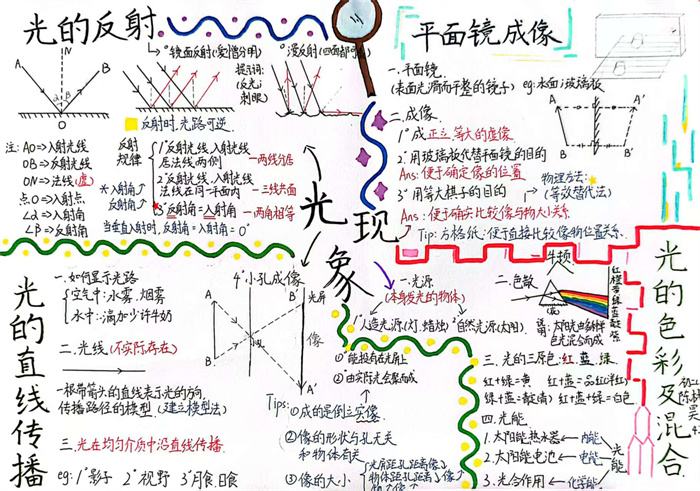 光现象
光的反射
A
N
B
O
1°镜面反射(爱憎分明)
2°漫反射(四面都可看)
提示词:
(反光;
刺眼)
反射时,光路可逆
注: AO⇒入射光线
OB⇒反射光线
ON⇒法线(虚)
点O⇒入射点
∠α⇒入射角
∠β⇒反射角
反射
规律
1°反射光线、入射光线
居法线两侧
→两线分居
2°反射光线、入射光线、
法线在同一平面内
→三线共面
3°反射角=入射角
→两角相等
*入射角↗
反射角↗
当垂直入射时,反射角=入射角=0°
平面镜成像
一.平面镜
(表面光滑而平整的镜子) eg:水面;玻璃板
二.成像
1°成正立等大的虚像
2°用玻璃板代替平面镜的目的
Ans:便于确定像的位置
3°用等大棋子的目的
物理方法:
(等效替代法)
Ans:便于确实比较像与物大小关系
Tip:方格纸:便于直接比较像物位置关系.
A
A'
B
B'
光的直线传播
一.如何显示光路
空气中:水雾、烟雾
水中:滴加少许牛奶
二.光线(不实际存在)
一根带箭头的直线表示光的方向、
传播路径的模型.(建立模型法)
三.光在均匀介质中沿直线传播.
eg:1°影子 2°视野 3°月食.日食
4°小孔成像
光屏
像
A
B
B'
A'
①能投射在光屏上
②由实际光会聚而成
Tips:
①成的是倒立实像.
②像的形状与孔无关
和物体有关
③像的大小
光屏距孔距离像↑
物体距孔距离↑像↓
光的色彩及混合
一.光源
(本身发光的物体)
1°人造光源(灯、蜡烛)
2°自然光源(太阳)
牛顿
二.色散
红橙黄绿蓝靛紫
三.光的三原色:红、蓝、绿
红+绿=黄 红+蓝=品红(洋红)
绿+蓝=靛(青) 红+绿+蓝=白色
四.光能
1.太阳能热水器←内能
2.太阳能电池←电能
3.光合作用←化学能
光能